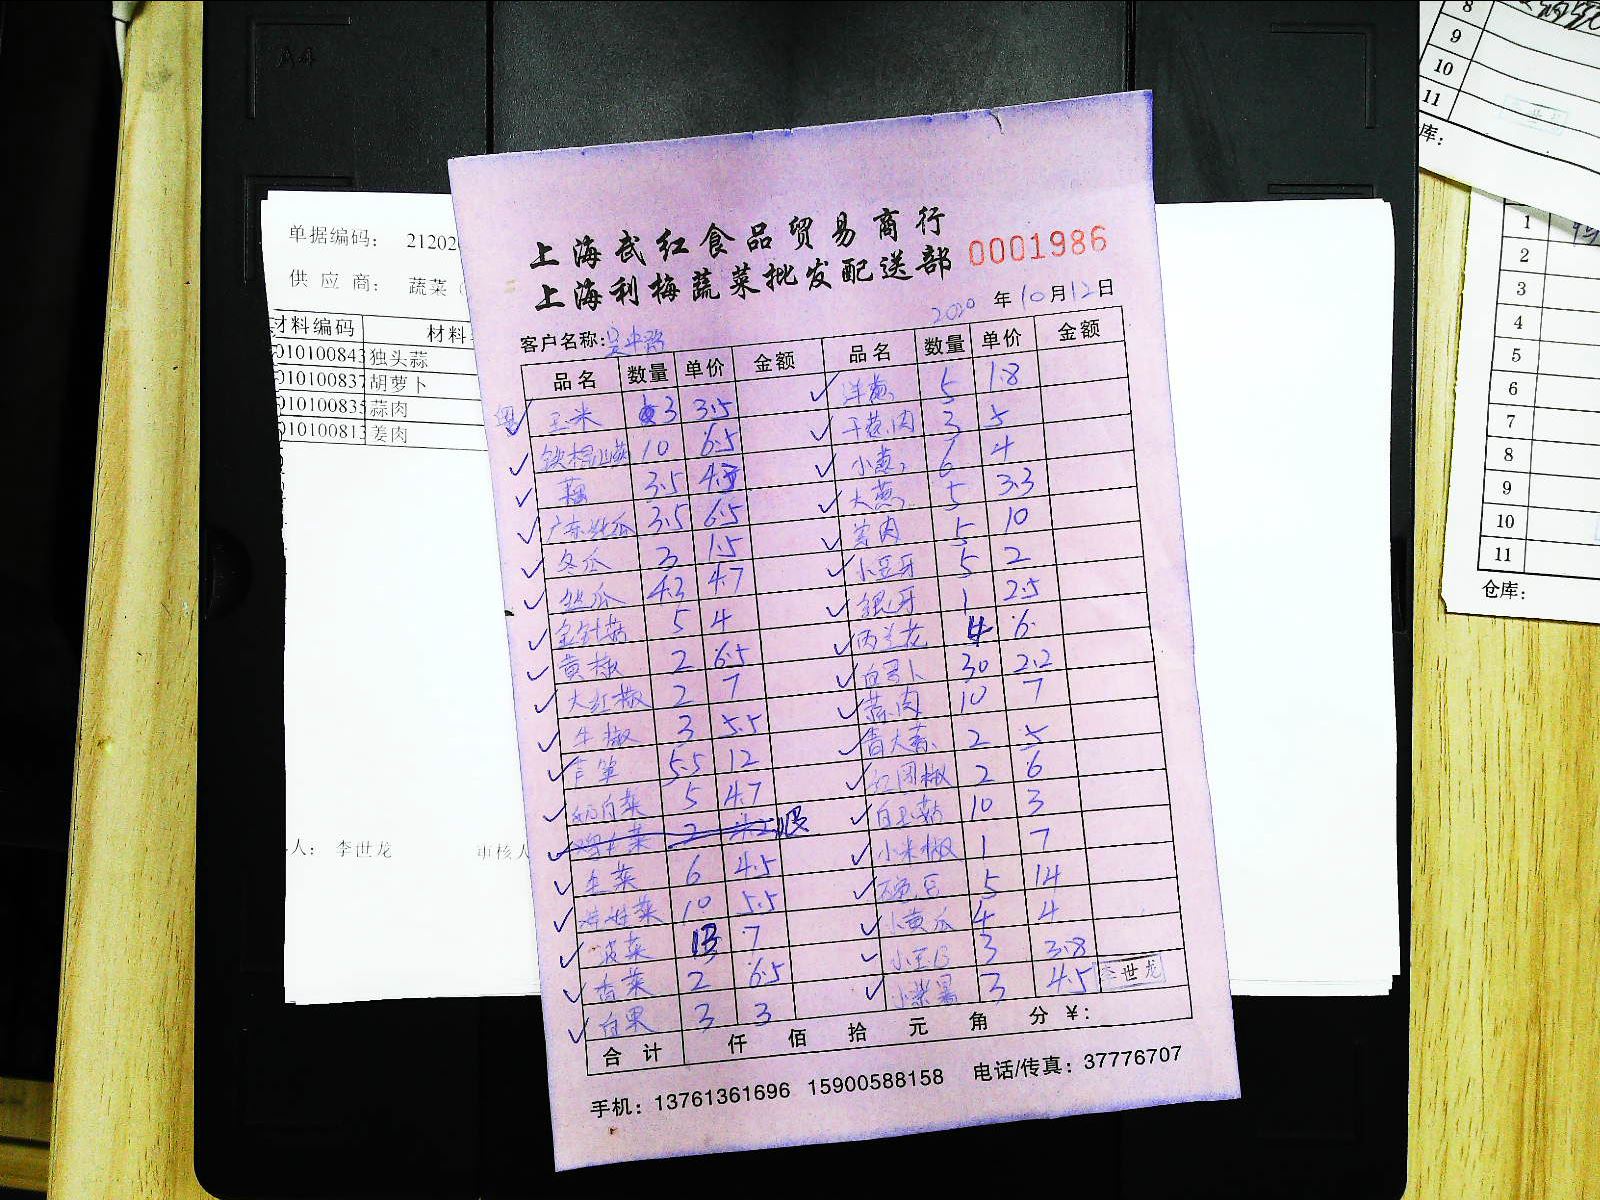 A4
单据编码： 21202
供 应 商： 蔬菜
材料编码 材料
010100843 独头蒜
010100837 胡萝卜
010100835 蒜肉
010100813 姜肉
人： 李世龙 审核人
上海武红食品贸易商行
上海利梅蔬菜批发配送部 0001986
2020 年 10 月 12 日
客户名称：吴中路
品名 数量 单价 金额 品名 数量 单价 金额
玉米 3 3.5 洋葱 5 1.8
铁棍山药 10 6.5 干葱肉 3 5
藕 3.5 小葱 6 4
广东丝瓜 3.5 6.5 大葱 5 3.3
冬瓜 3 1.5 肉 5 10
丝瓜 4.3 4.7 小豆牙 5 2
金针菇 5 4 银牙 1 2.5
黄椒 2 6.5 西兰花 4 6
大红椒 2 7 白罗卜 30 2.2
牛椒 3 5.5 蒜肉 10 7
12 青大蒜 2 5
奶白菜 5 4.7 红团椒 2 6
2 白玉菇 10 3
生菜 6 4.5 小米椒 1 7
10 5.5 豌豆 5 14
菠菜 13 7 小黄瓜 4 4
香菜 2 6.5 3 3.8
白果 3 3 3 4.5 李世龙
合计 仟 佰 拾 元 角 分 ¥：
手机：13761361696 15900588158 电话/传真：37776707
8
9
10
11
库：
1
2
3
4
5
6
7
8
9
10
11
仓库：